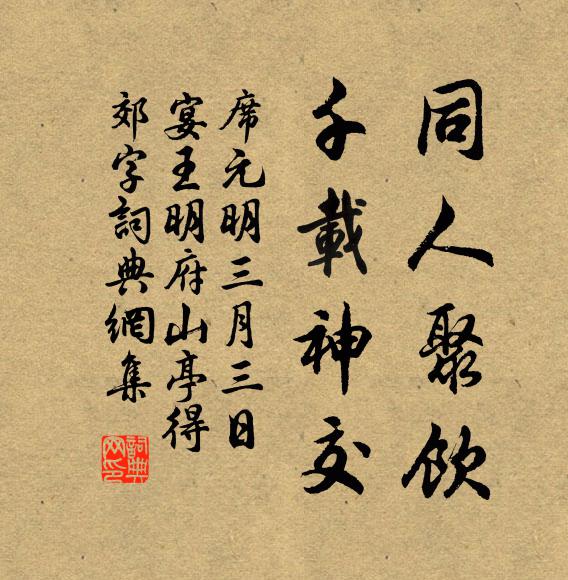 同人聚飲
千載神交
席元明三月三日
宴王明府山亭得
郊字詞典網集
詞典
网印